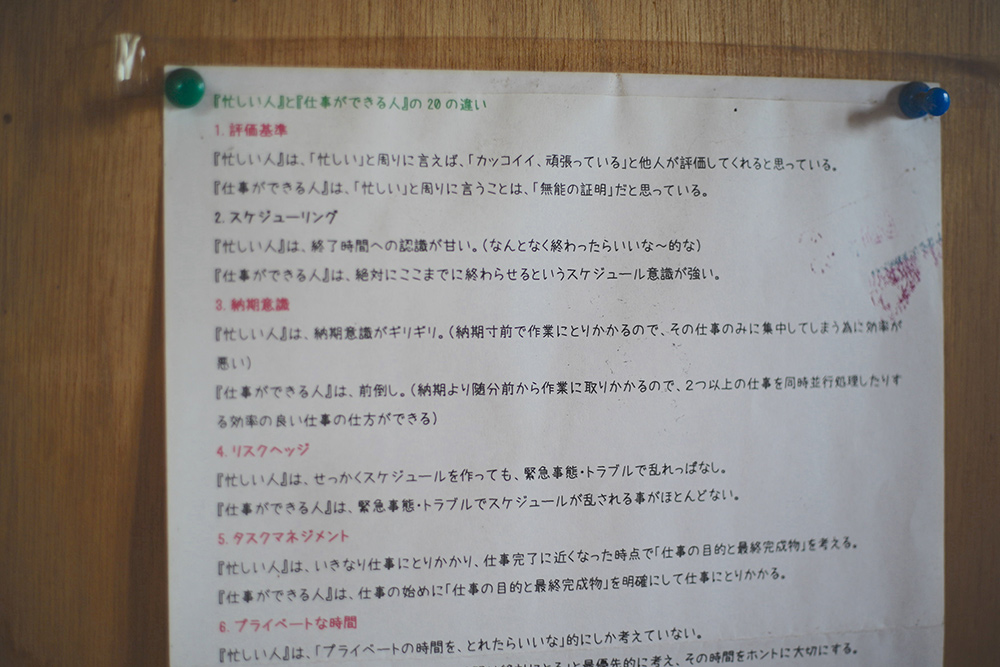 『忙しい人』と『仕事ができる人』の 20 の違い
1. 評価基準
『忙しい人』は、「忙しい」と周りに言えば、「カッコイイ、頑張っている」と他人が評価してくれると思っている。
『仕事ができる人』は、「忙しい」と周りに言うことは、「無能の証明」だと思っている。
2. スケジューリング
『忙しい人』は、終了時間への認識が甘い。(なんとなく終わったらいいな〜的な)
『仕事ができる人』は、絶対にここまでに終わらせるというスケジュール意識が強い。
3. 納期意識
『忙しい人』は、納期意識がギリギリ。(納期寸前で作業にとりかかるので、その仕事のみに集中してしまう為に効率が
悪い)
『仕事ができる人』は、前倒し。(納期より随分前から作業に取りかかるので、2つ以上の仕事を同時並行処理したりす
る効率の良い仕事の仕方ができる)
4. リスクヘッジ
『忙しい人』は、せっかくスケジュールを作っても、緊急事態・トラブルで乱れっぱなし。
『仕事ができる人』は、緊急事態・トラブルでスケジュールが乱される事がほとんどない。
5. タスクマネジメント
『忙しい人』は、いきなり仕事にとりかかり、仕事完了に近くなった時点で「仕事の目的と最終完成物」を考える。
『仕事ができる人』は、仕事の始めに「仕事の目的と最終完成物」を明確にして仕事にとりかかる。
6. プライベートな時間
『忙しい人』は、「プライベートの時間を、とれたらいいな」的にしか考えていない。
と最優先的に考え、その時間をホントに大切にする。